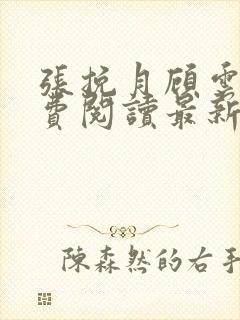 張挽月顧雲
費閱讀最新
陳森然的右手